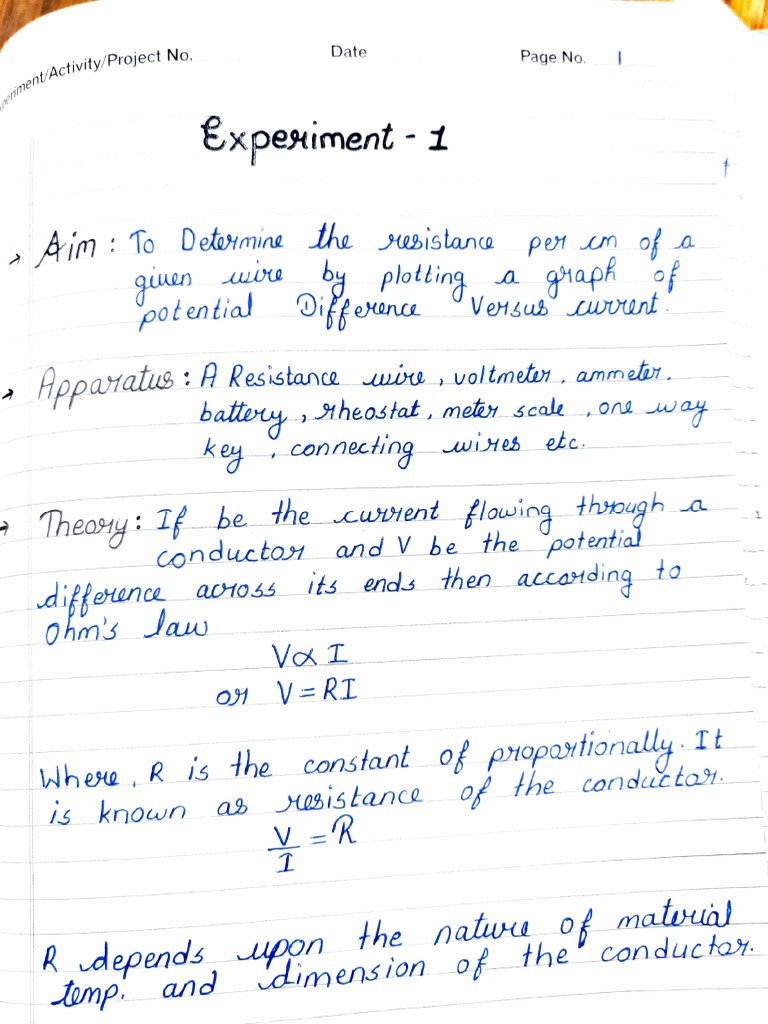 Experiment/Activity/Project No. Date Page No. 1
Experiment - 1
→ Aim : To Determine the resistance per cm of a
given wire by plotting a graph of
potential Difference Versus current.
→ Apparatus : A Resistance wire , voltmeter , ammeter.
battery , rheostat , meter scale , one way
key , connecting wires etc.
→ Theory : If be the current flowing through a
conductor and V be the potential
difference across its ends then according to
Ohm's law
V∝ I
or V = RI
Where, R is the constant of proportionally. It
is known as resistance of the conductor.
V/I = R
R depends upon the nature of material
temp. and dimension of the conductor.